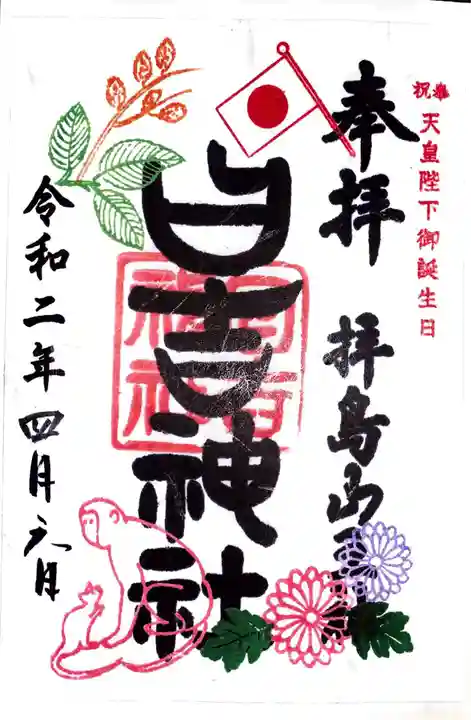 奉祝
天皇陛下御誕生日
奉拝
拝島山王
日吉神社
日吉
神社
令和二年四月六日